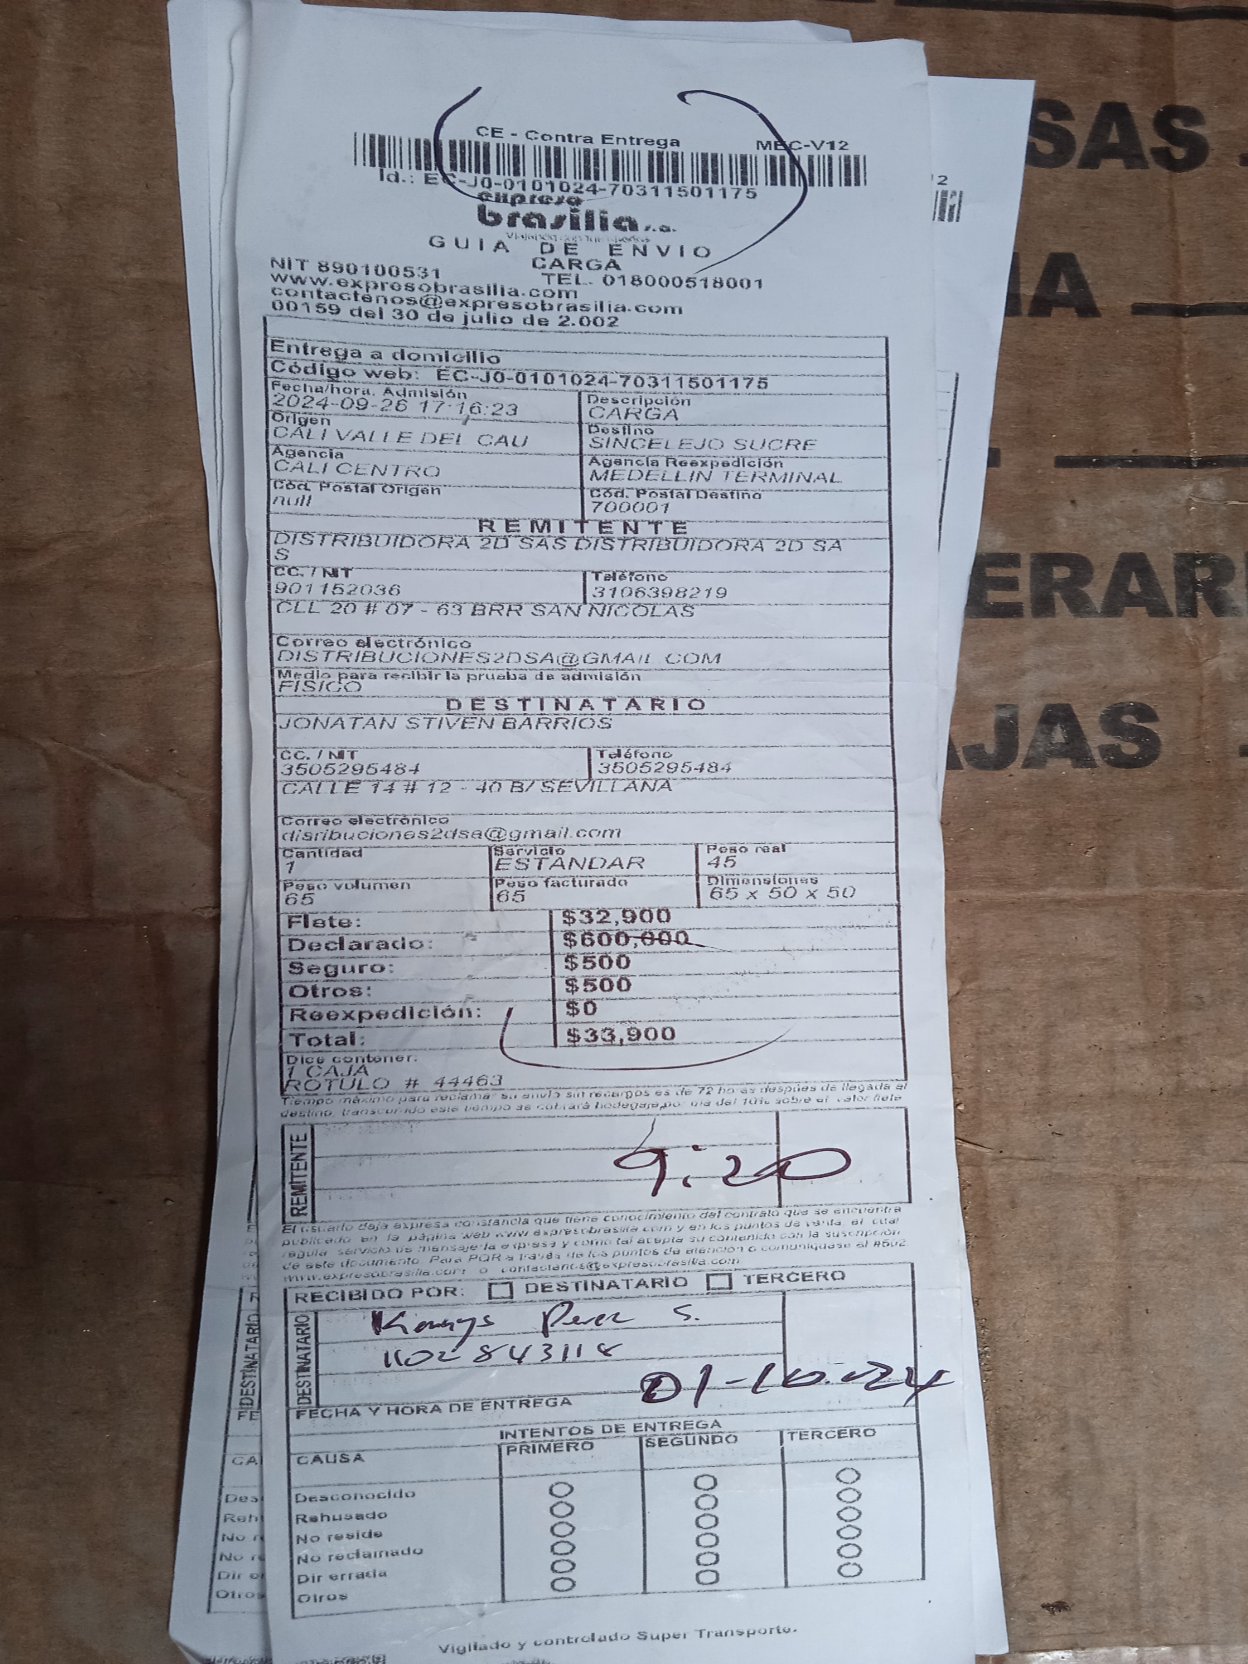 CE - Contra Entrega
MEC-V12
Id.: EC-J0-0101024-70311501175
expreso
brasilia s.a.
GUIA DE ENVIO
CARGA
NIT 890100531
TEL. 018000518001
www.expresobrasilia.com
contactenos@expresobrasilia.com
00159 del 30 de julio de 2.002
Entrega a domicilio
Código web: EC-J0-0101024-70311501175
Fecha/hora. Admisión
2024-09-26 17:16:23
Descripción
CARGA
Origen
CALI VALLE DEL CAU
Destino
SINCELEJO SUCRE
Agencia
CALI CENTRO
Agencia Reexpedición
MEDELLIN TERMINAL
Cód. Postal Origen
null
Cód. Postal Destino
700001
REMITENTE
DISTRIBUIDORA 2D SAS DISTRIBUIDORA 2D SA
S
CC. / NIT
901152036
Teléfono
3106398219
CLL 20 # 07 - 63 BRR SAN NICOLAS
Correo electrónico
DISTRIBUCIONES2DSA@GMAIL.COM
Medio para recibir la prueba de admisión
FISICO
DESTINATARIO
JONATAN STIVEN BARRIOS
CC. / NIT
3505295484
Teléfono
3505295484
CALLE 14 # 12 - 40 B/ SEVILLANA
Correo electrónico
disribuciones2dsa@gmail.com
Cantidad
1
Servicio
ESTANDAR
Peso real
45
Peso volumen
65
Peso facturado
65
Dimensiones
65 x 50 x 50
Flete: $32,900
Declarado: $600,000
Seguro: $500
Otros: $500
Reexpedición: $0
Total: $33,900
Dice contener:
1 CAJA
ROTULO # 44463
Tiempo máximo para reclamar su envío sin recargos es de 72 horas después de llegada al
destino, transcurrido este tiempo se cobrará bodegaje por día del 10% sobre el valor flete
REMITENTE
9:20
El usuario deja expresa constancia que tiene conocimiento del contrato que se encuentra
publicado en la página web www.expresobrasilia.com y en los puntos de venta, el cual
regula servicio de mensajería expresa y como tal acepta su contenido con la suscripción
de este documento. Para PQR a través de los puntos de atención o comuníquese al #502
www.expresobrasilia.com o contactenos@expresobrasilia.com
RECIBIDO POR: DESTINATARIO TERCERO
DESTINATARIO
Perez S.
1102843118
01-10.024
FECHA Y HORA DE ENTREGA
INTENTOS DE ENTREGA
CAUSA PRIMERO SEGUNDO TERCERO
Desconocido
Rehusado
No reside
No reclamado
Dir errada
Otros
Vigilado y controlado Super Transporte.
SAS
IA
ERAR
AJAS